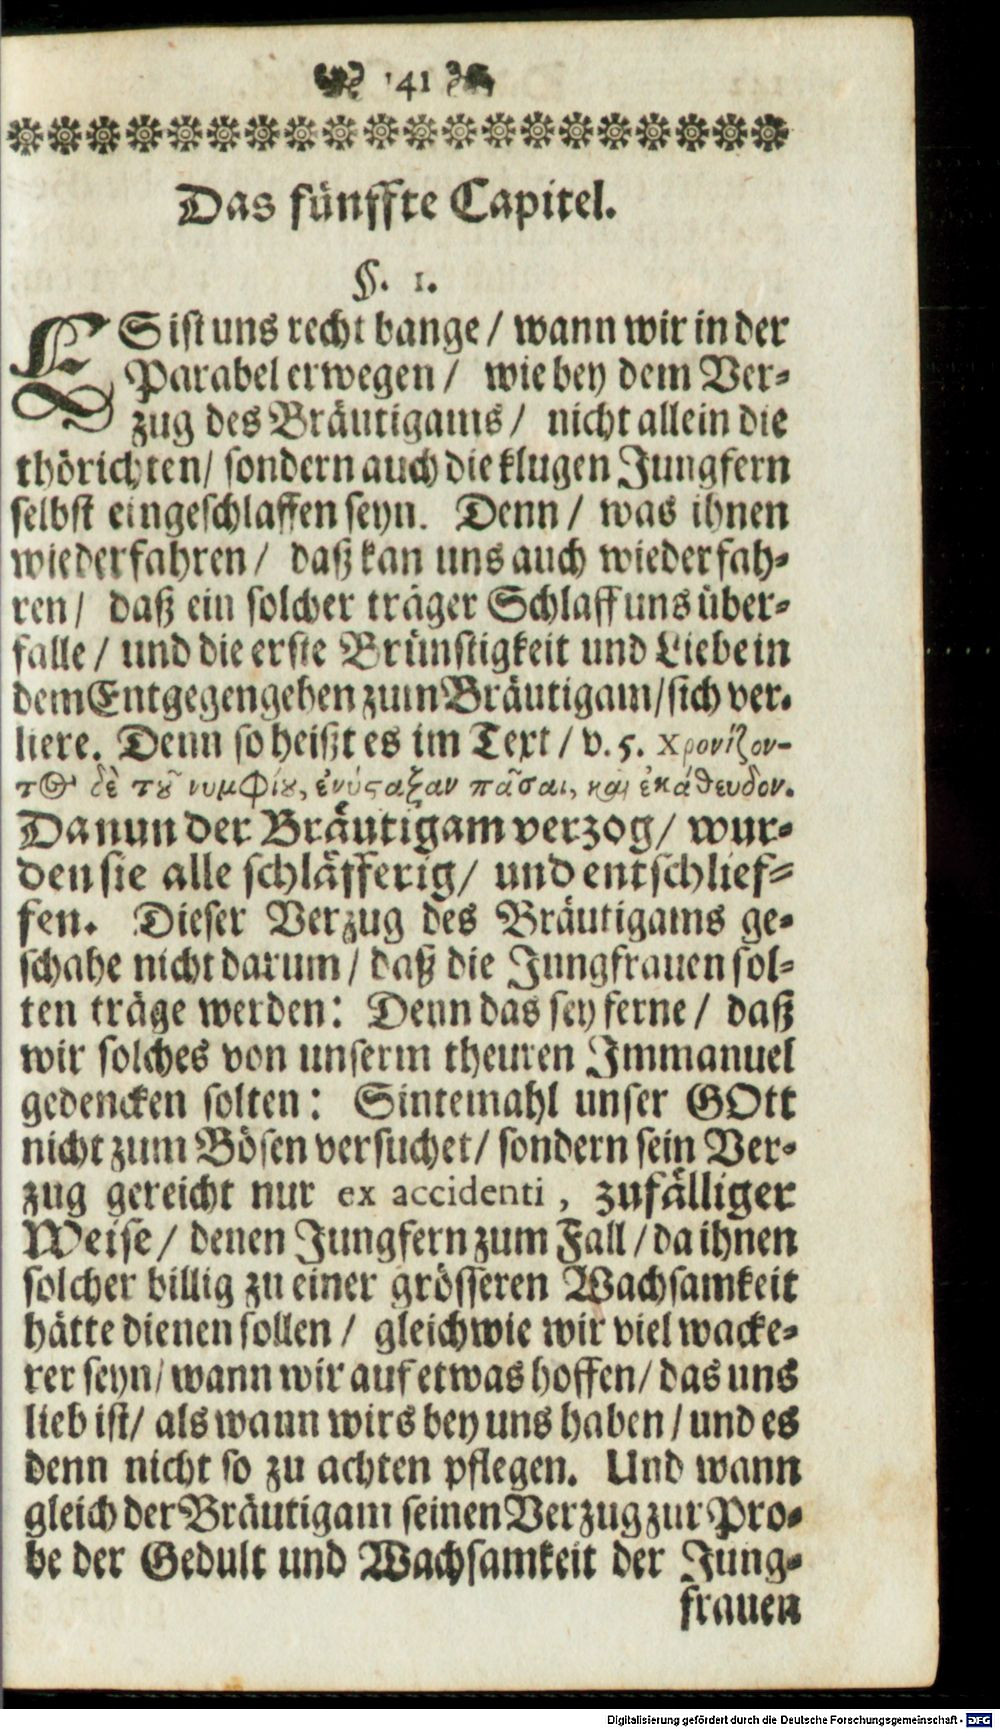 141
Das fünffte Capitel.
§. 1.
ES ist uns recht bange / wann wir in der
Parabel erwegen / wie bey dem Ver-
zug des Bräutigams / nicht allein die
thörichten / sondern auch die klugen Jungfern
selbst eingeschlaffen seyn. Denn / was ihnen
wiederfahren / daß kan uns auch wiederfah-
ren / daß ein solcher träger Schlaff uns über-
falle / und die erste Brünstigkeit und Liebe in
dem Entgegengehen zum Bräutigam / sich ver-
liere. Denn so heißt es im Text / v. 5. χρονίζον-
τ⊙ δὲ τȣ͂ νυμφίȣ, ἐνύςαξαν πᾶσαι, καὶ ἐκάθευδον.
Da nun der Bräutigam verzog / wur-
den sie alle schläfferig / und entschlief-
fen. Dieser Verzug des Bräutigams ge-
schahe nicht darum / daß die Jungfrauen sol-
ten träge werden: Denn das sey ferne / daß
wir solches von unserm theuren Immanuel
gedencken solten: Sintemahl unser GOtt
nicht zum Bösen versuchet / sondern sein Ver-
zug gereicht nur ex accidenti, zufälliger
Weise / denen Jungfern zum Fall / da ihnen
solcher billig zu einer grösseren Wachsamkeit
hätte dienen sollen / gleichwie wir viel wacke-
rer seyn / wann wir auf etwas hoffen / das uns
lieb ist / als wann wirs bey uns haben / und es
denn nicht so zu achten pflegen. Und wann
gleich der Bräutigam seinen Verzug zur Pro-
be der Gedult und Wachsamkeit der Jung-
frauen
Digitalisierung gefördert durch die Deutsche Forschungsgemeinschaft - DFG